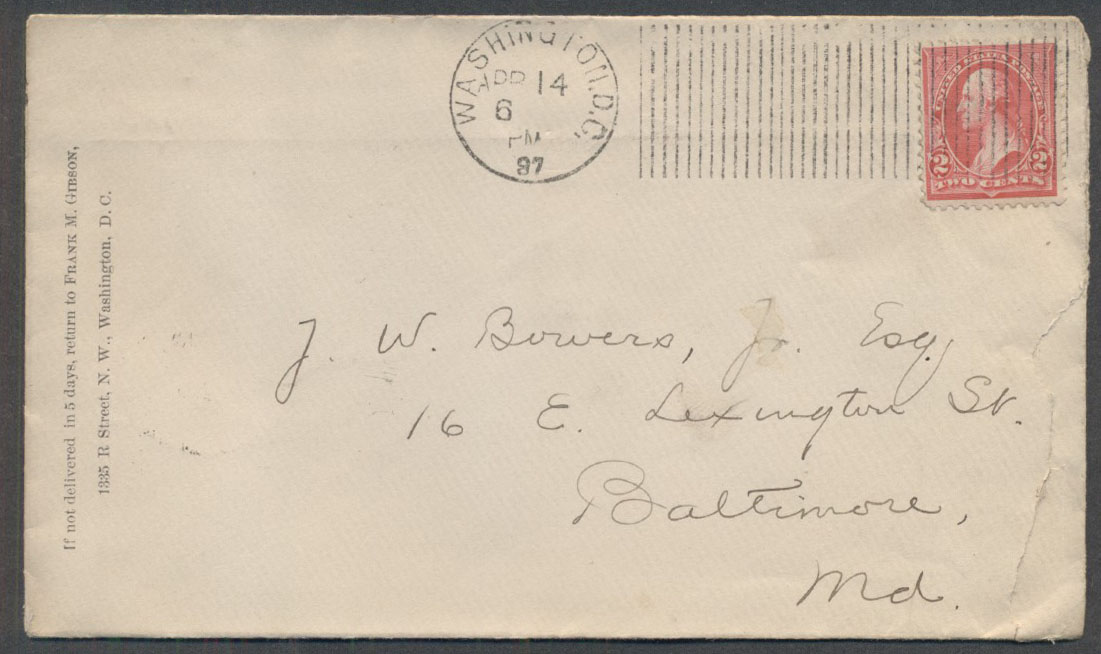 If not delivered in 5 days, return to FRANK M. GIBSON,
1335 R Street, N. W., Washington, D. C.
WASHINGTON, D.C.
APR 14
6
PM
97
UNITED STATES POSTAGE
2 2
TWO CENTS
J. W. Bowers, Jr. Esq.
16 E. Lexington St.
Baltimore,
Md.